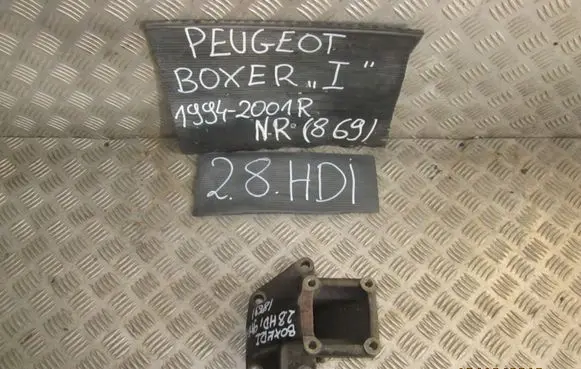 PEUGEOT
BOXER „I"
1994-2001R
N.R. (869)
2.8.HDI
BOXER I
2.8HDI